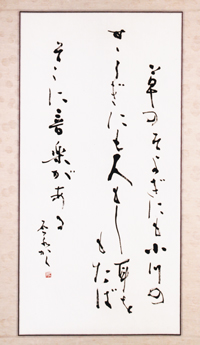 草のそよぎにも小川の
せゝらぎにも人もし耳を
もたば
そこに音楽がある